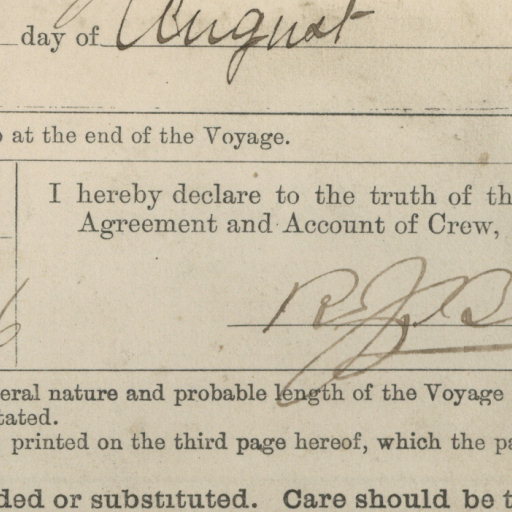 day of August
at the end of the Voyage.
I hereby declare to the truth of
Agreement and Account of Crew,
nature and probable length of the Voyage
printed on the third page hereof, which the
or substituted. Care should be